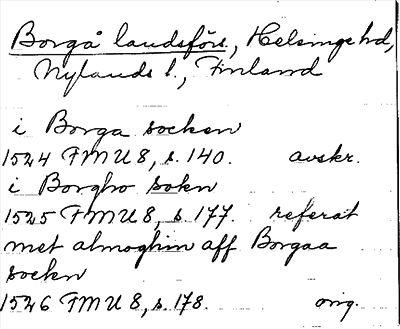 Borgå landsförs., Helsinge hd,
Nylands l., Finland
i Borga socken
1524 FMU 8, s. 140. avskr.
i Borgho sokn
1525 FMU 8, s. 177. referat
met almoghin aff Borgaa
socken
1526 FMU 8, s. 178. orig.